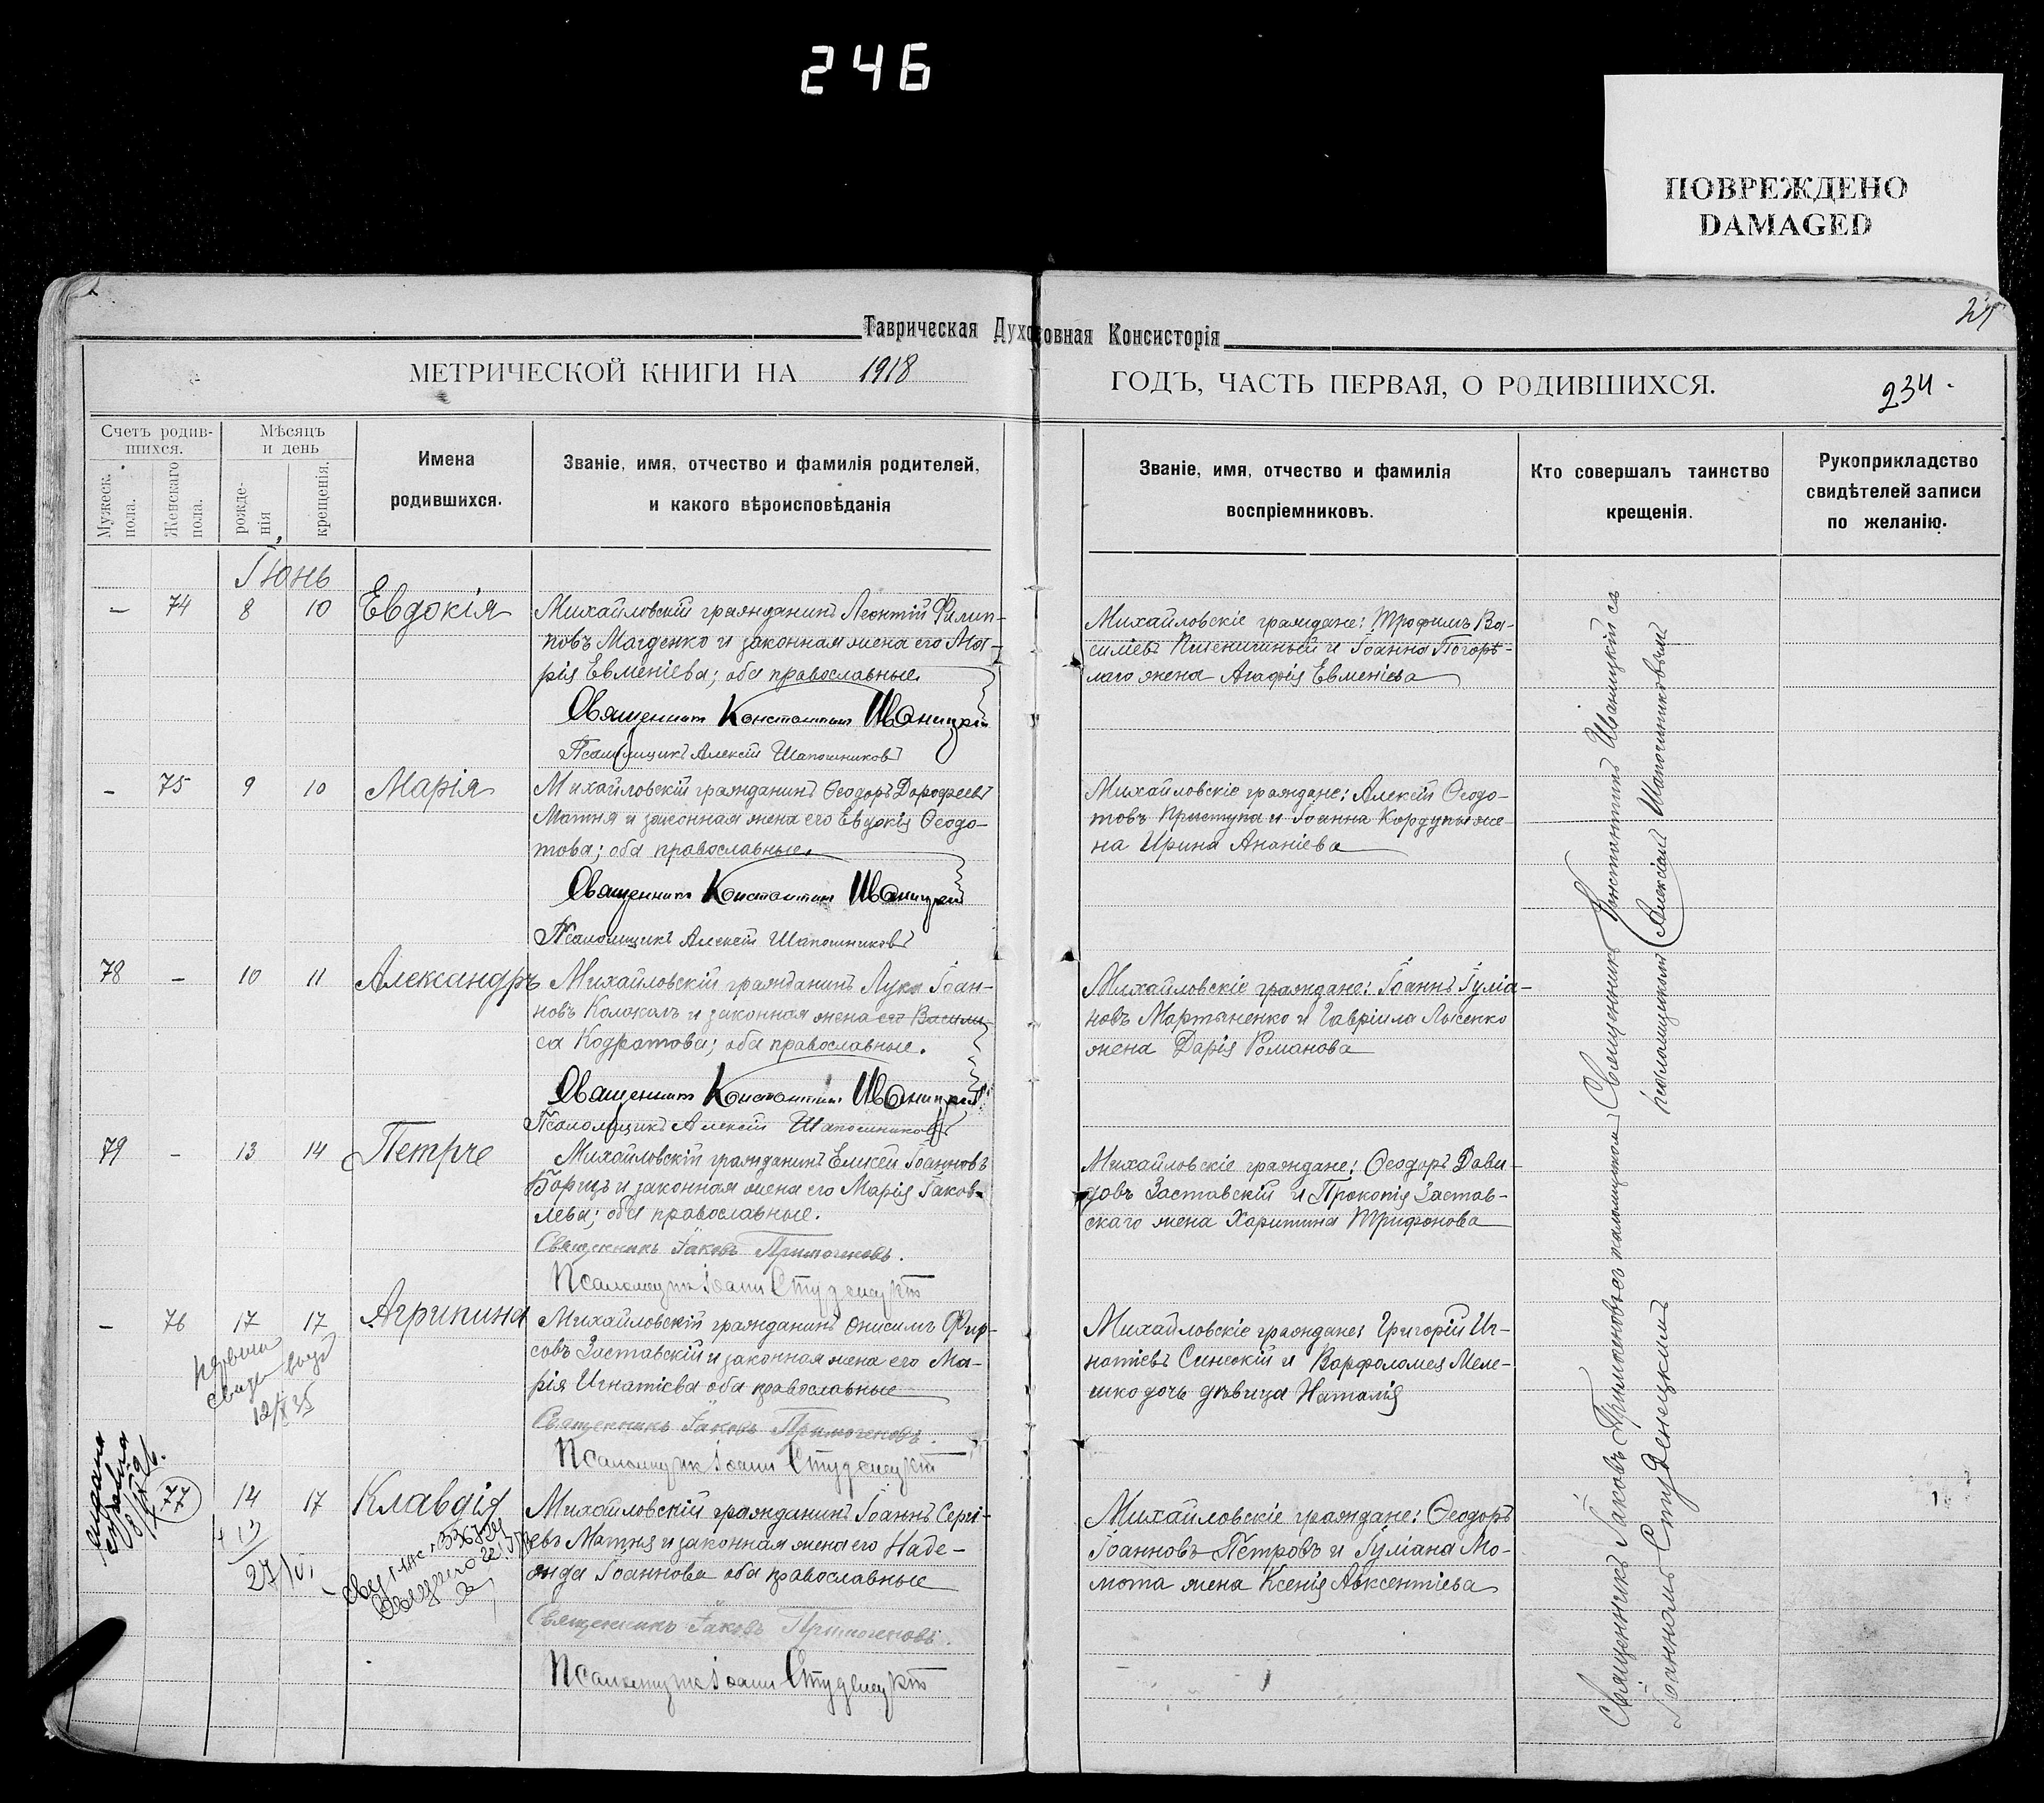 246
ПОВРЕЖДЕНО
DAMAGED
Таврическая Духовная Консисторія
МЕТРИЧЕСКОЙ КНИГИ НА 1918 ГОДЪ, ЧАСТЬ ПЕРВАЯ, О РОДИВШИХСЯ.
234
Счетъ родив-
шихся.
Мужеск.
пола.
Женскаго
пола.
Мѣсяцъ
и день
рожде-
нія
крещенія.
Имена
родившихся.
Званіе, имя, отчество и фамилія родителей,
и какого вѣроисповѣданія
Званіе, имя, отчество и фамилія
воспріемниковъ.
Кто совершалъ таинство
крещенія.
Рукоприкладство
свидѣтелей записи
по желанію.
Іюнь
– 74 8 10 Евдокія
Михайловскій гражданинъ Леонтій Филип-
повъ Магденко и законная жена его Ма-
рія Евменіева; оба православные.
Священникъ Константинъ Иваницкій
Псаломщикъ Алексій Шапошниковъ
Михайловскіе граждане: Трофимъ Ва-
силіевъ Пшеничный и Іоанна Погорѣ-
лаго жена Агафія Евменіева
– 75 9 10 Марія
Михайловскій гражданинъ Ѳеодоръ Дорофеевъ
Матня и законная жена его Евдокія Ѳеодо-
това; оба православные.
Священникъ Константинъ Иваницкій
Псаломщикъ Алексій Шапошниковъ
Михайловскіе граждане: Алексій Ѳеодо-
товъ Приступа и Іоанна Кордупы же-
на Ирина Ананіева
78 – 10 11 Александръ
Михайловскій гражданинъ Лука Іоан-
новъ Колокалъ и законная жена его Васили-
са Кодратова; оба православные.
Священникъ Константинъ Иваницкій
Псаломщикъ Алексій Шапошниковъ
Михайловскіе граждане: Іоаннъ Іуліа-
новъ Мартыненко и Гавріила Лысенко
жена Дарія Романова
79 – 13 14 Петръ
Михайловскій гражданинъ Елисей Іоанновъ
Борицъ и законная жена его Марія Іаков-
лева; оба православные.
Священникъ Іаковъ Примогеновъ.
Псаломщикъ Іоаннъ Студенецкій
Михайловскіе граждане: Ѳеодоръ Дави-
довъ Заставскій и Прокопія Застав-
скаго жена Харитина Трифонова
– 76 17 17 Агрипина
Михайловскій гражданинъ Онисимъ Фир-
совъ Заставскій и законная жена его Ма-
рія Игнатіева оба православные
Священникъ Іаковъ Примогеновъ.
Псаломщикъ Іоаннъ Студенецкій
Михайловскіе граждане: Григорій Иг-
натіевъ Синсокій и Варфоломея Меле-
шко дочь дѣвица Наталія
12/X 35
77 14 17 Клавдія
+13
27/VI
Михайловскій гражданинъ Іоаннъ Сергі-
евъ Матня и законная жена его Наде-
жда Іоаннова оба православные
Священникъ Іаковъ Примогеновъ.
Псаломщикъ Іоаннъ Студенецкій
Михайловскіе граждане: Ѳеодоръ
Іоанновъ Петровъ и Іуліана Мо-
мота жена Ксенія Авксентіева
Священникъ Константинъ Иваницкій съ
псаломщикомъ Алексіемъ Шапошниковымъ
Священникъ Іаковъ Примогеновъ съ псаломщикомъ
Іоанномъ Студенецкимъ